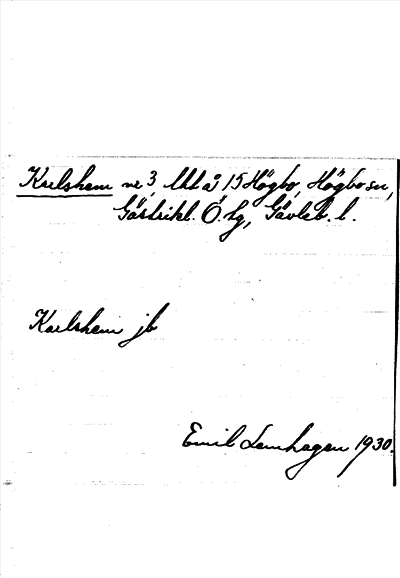 Karlshem nr 3, Utt å 15 Högbo, Högbo sn,
Gästrikl. Ö. tg, Gävleb. l.
Karlshem jb
Emil Lenhagen 1930.